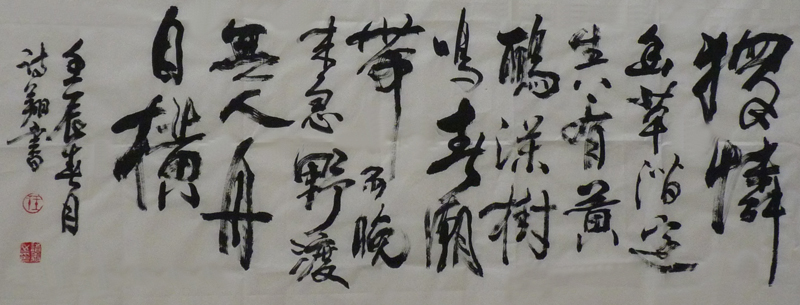 獨憐
幽草澗邊
生上有黄
鸝深樹
鳴春潮
帶雨晚
来急野渡
無人舟
自橫
壬辰春月
诗翔書